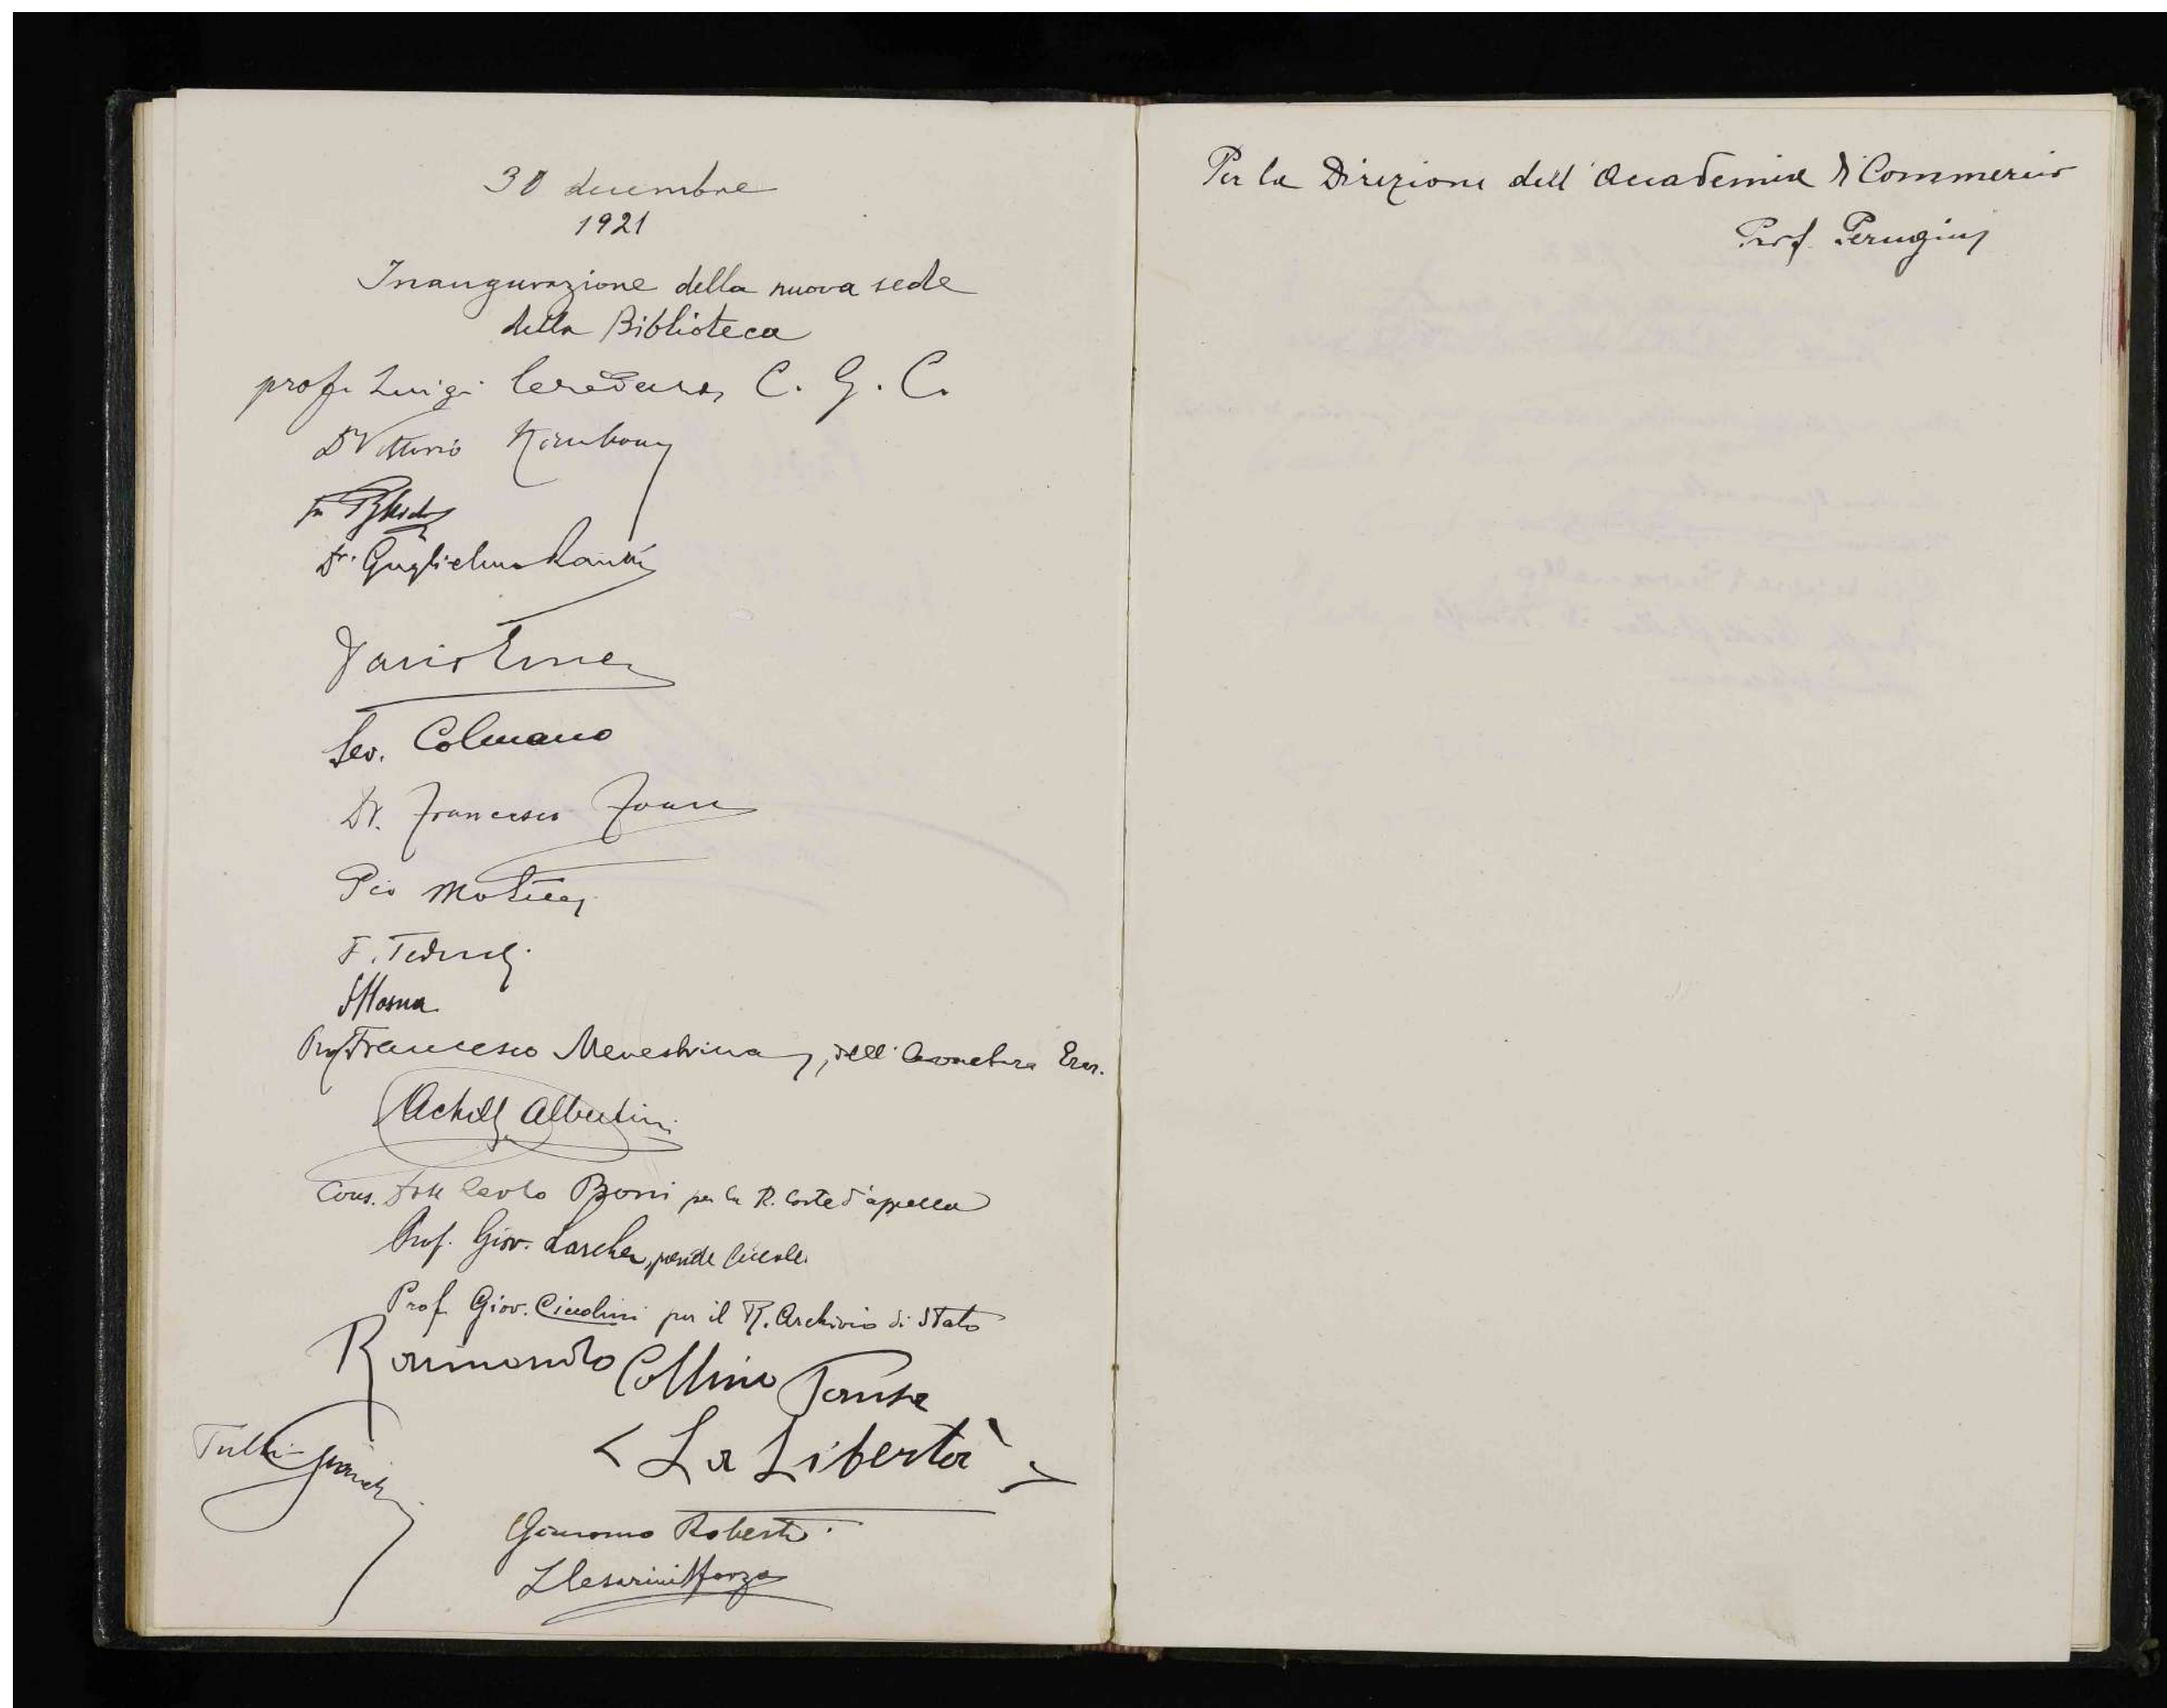 30 dicembre
1921
Inaugurazione della nuova sede
della Biblioteca
prof. Luigi Credaro, C. G. C.
Dr Vittorio
Dr. Guglielmo Ranzi
Dario Emer
Sev. Colmano
Dr. Francesco
Pio
F. Tedeschi
Mosna
Prof Francesco Menestrina, dell' Avvocatura Erar.
Achille Albertini
Cons. Dott Carlo Boni per la R. Corte d'appello
Prof. Giov. Lascher,
Prof. Giov. Ciccolini per il R. Archivio di Stato
Raimondo Collino Pansa
< La Libertà >
Giacomo Roberti
L Cesarini Sforza
Per la Direzione dell' Accademia di Commercio
Prof. Perugini